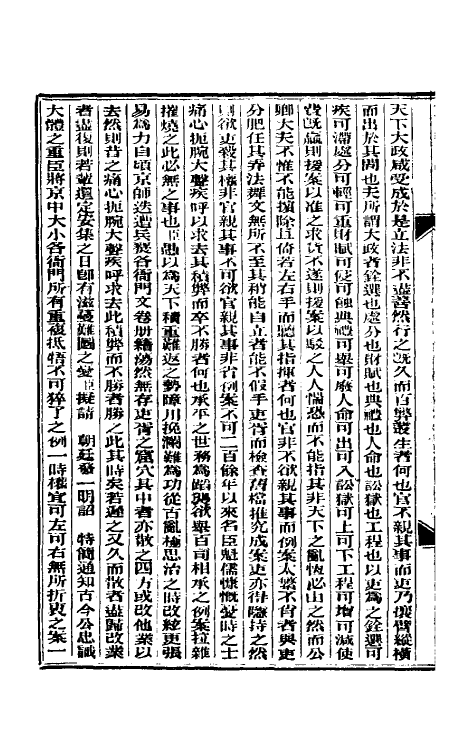 天下大政咸受成於是立法非不盡善然行之旣久而百弊叢生者何也官不親其事而吏乃攘臂縱橫
而出於其間也夫所謂大政者銓選也處分也財賦也典禮也人命也訟獄也工程也以吏爲之銓選可
疾可滯處分可輕可重財賦可侵可蝕典禮可舉可廢人命可出可入訟獄可上可下工程可增可減使
費旣贏則援案以准之求貨不遂則援案以駁之人人惴恐而不能指其非天下之亂恆必由之然而公
卿大夫不惟不能擯除且倚若左右手而聽其指揮者何也官非不欲親其事而例案太繁不肖者與吏
分肥任其弄法舞文無所不至其稍能自立者能不假手吏胥而檢查舊檔推究成案吏亦得隱持之然
則欲吏戢其權非官親其事不可欲官親其事非省例案不可二百餘年以來名臣魁儒慷慨憂時之士
痛心扼腕大聲疾呼以求去其積弊而卒不勝者何也承平之世務爲 欲舉百司相承之例案拉雜
摧燒之此必無之事也臣愚以爲天下積重難返之勢障川挽瀾難爲功從古亂極思治之時改絃更張
易爲力自頃京師迭遭兵燹各衙門文卷册籍蕩然無存吏胥之窟穴其中者亦散之四方或改他業以
去然則昔之痛心扼腕大聲疾呼求去此積弊而不勝者勝之此其時矣若遲之又久而散者盡歸改業
者盡復則若輩還定安集之日卽有滋蔓難圖之憂臣擬請　朝廷發一明詔　特簡通知古今公忠識
大體之重臣將京中大小各衙門所有重複抵牾不可猝了之例一時權宜可左可右無所折衷之案一